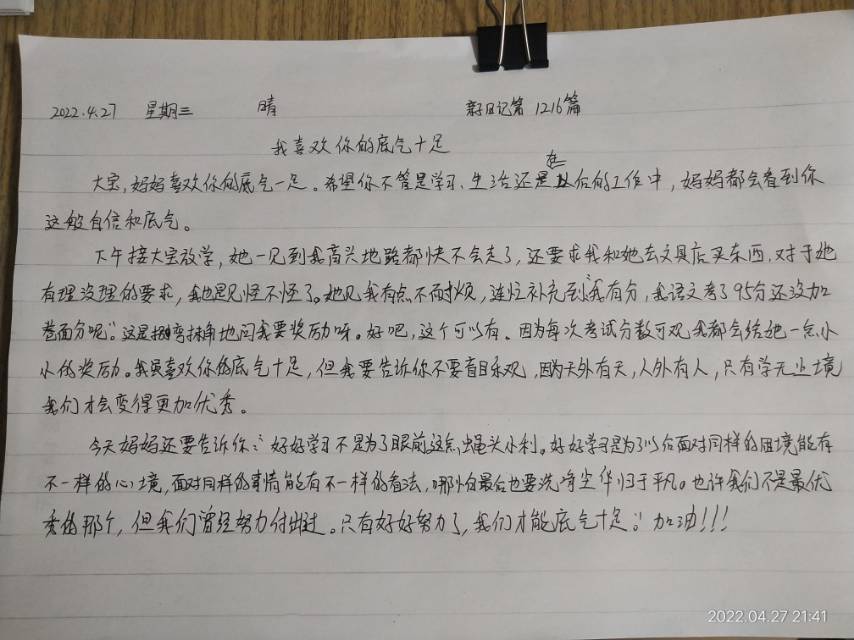 2022.4.27 星期三 晴 亲子日记第1216篇
我喜欢你的底气十足
大宝,妈妈喜欢你的底气一足。希望你不管是学习、生活还是在以后的工作中,妈妈都会看到你
这般自信和底气。
下午接大宝放学,她一见到我高兴地路都快不会走了,还要求我和她去文具店买东西,对于她
有理没理的要求,我也是见怪不怪了。她见我有点不耐烦,连忙补充到:“我有分,我语文考了95分还没加
卷面分呢”这是拐弯抹角地问我要奖励呀。好吧,这个可以有。因为每次考试分数可观我都会给她一点小
小的奖励。我虽喜欢你的底气十足,但我要告诉你不要盲目乐观,因为天外有天,人外有人,只有学无止境
我们才会变得更加优秀。
今天妈妈还要告诉你:“好好学习不是为了眼前这点蝇头小利。好好学习是为了以后面对同样的困境能有
不一样的心境,面对同样的事情能有不一样的看法,哪怕最后也要洗净尘华归于平凡。也许我们不是最优
秀的那个,但我们曾经努力付出过。只有好好努力了,我们才能底气十足”加油!!!
2022.04.27 21:41